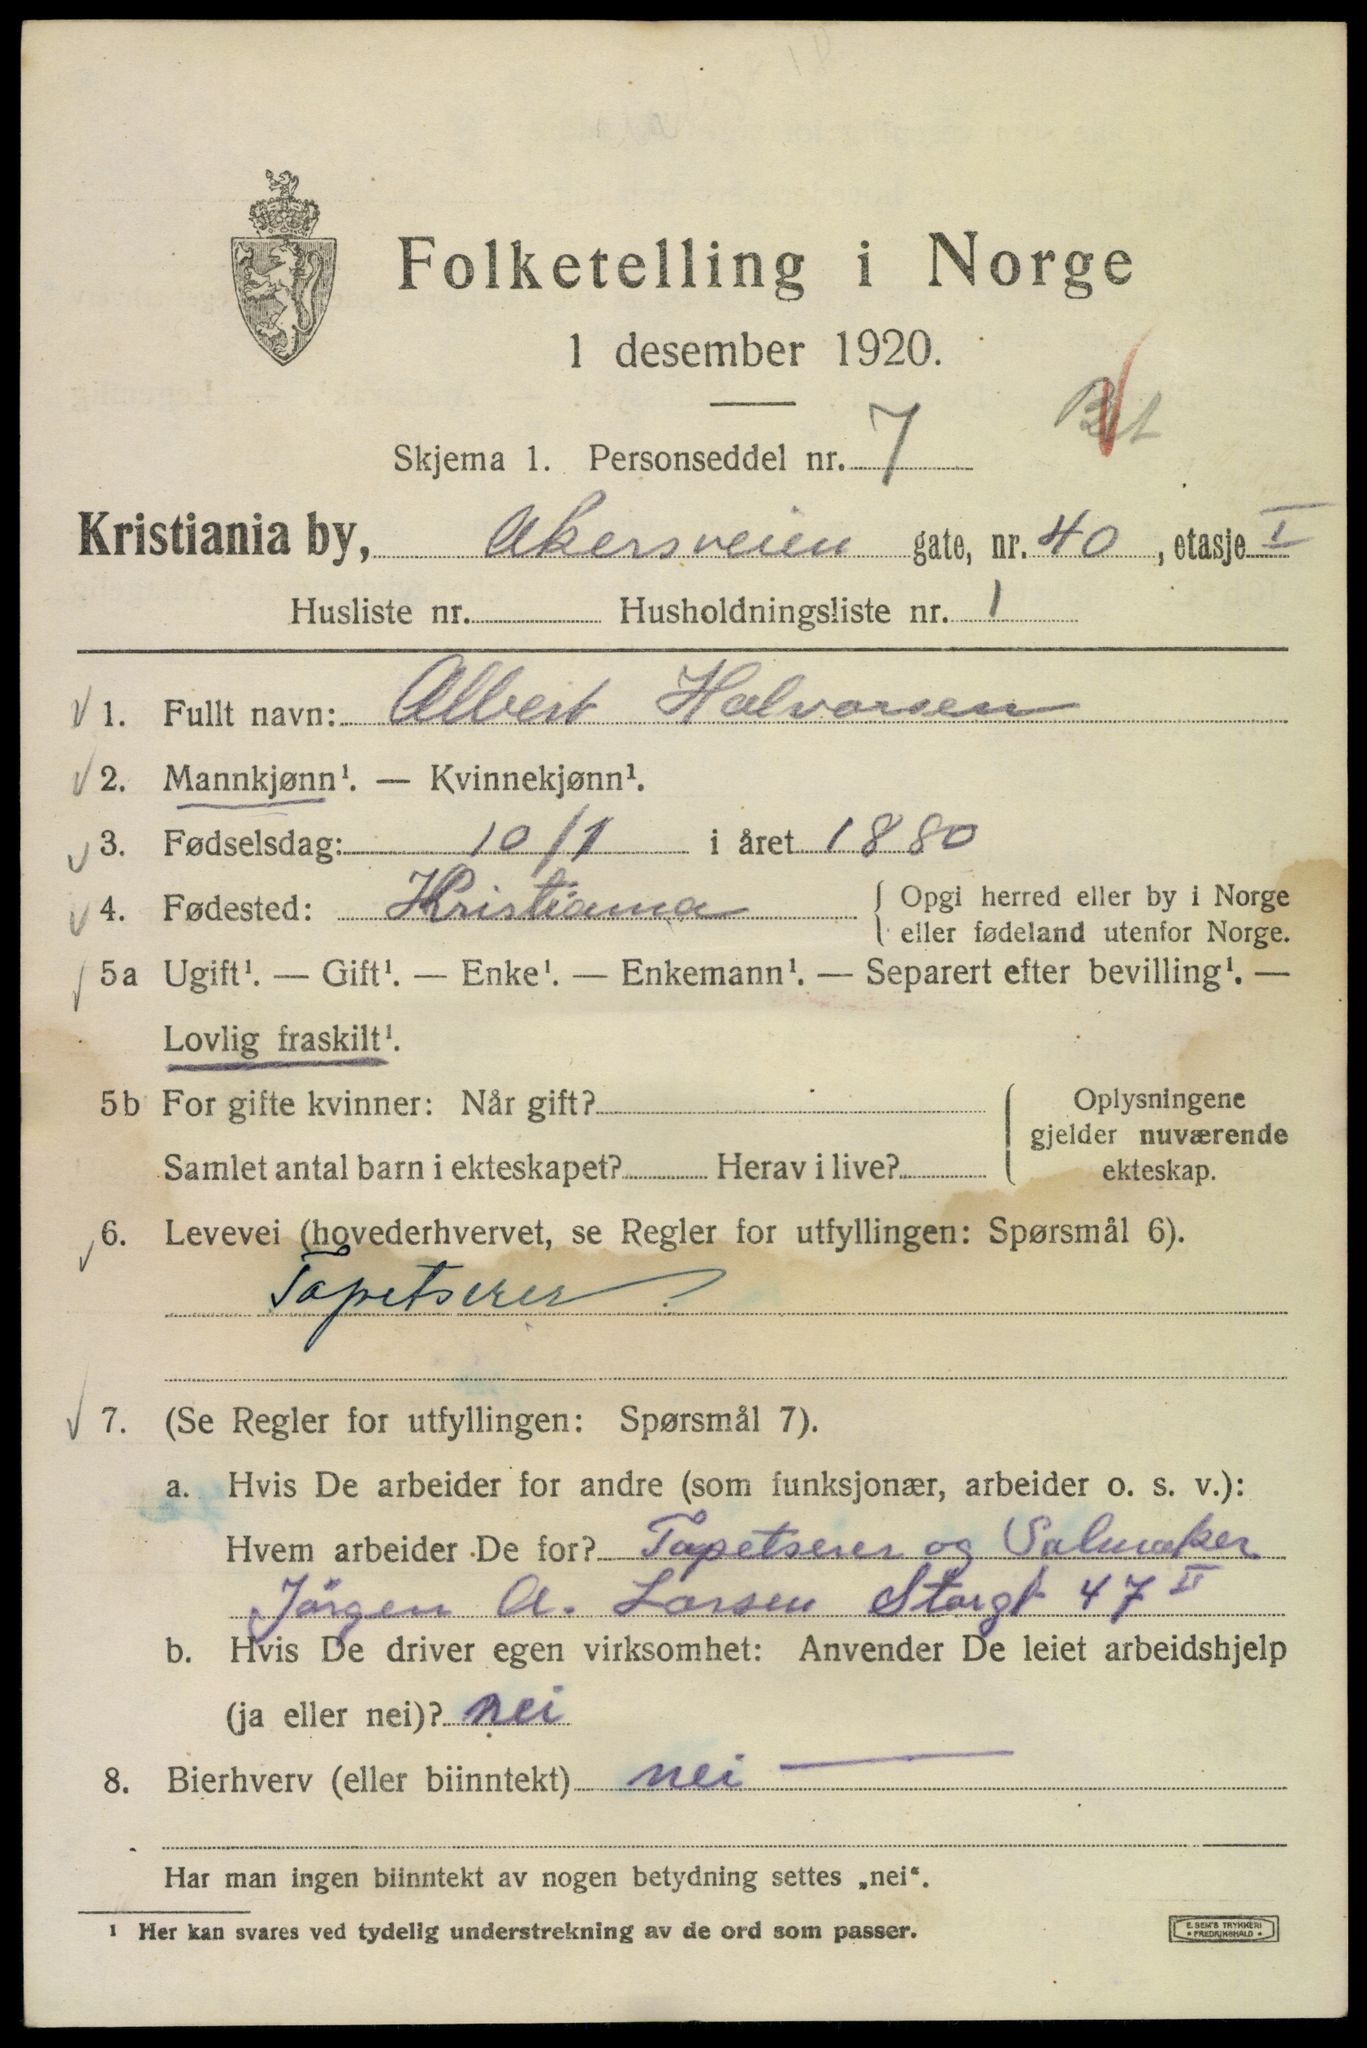 Folketelling i Norge
1 desember 1920.
Skjema 1. Personseddel nr. 7
Kristiania by, Akersveien gate, nr. 40, etasje I
Husliste nr. Husholdningsliste nr. 1
1. Fullt navn: Albert Halvorsen
2. Mannkjønn¹. — Kvinnekjønn¹.
3. Fødselsdag: 10/1 i året 1880
4. Fødested: Kristiania { Opgi herred eller by i Norge
eller fødeland utenfor Norge.
5a Ugift¹. — Gift¹. — Enke¹. — Enkemann¹. — Separert efter bevilling¹. —
Lovlig fraskilt¹.
5b For gifte kvinner: Når gift?
Samlet antal barn i ekteskapet? Herav i live?
Oplysningene
gjelder nuværende
ekteskap.
6. Levevei (hovederhvervet, se Regler for utfyllingen: Spørsmål 6).
Tapetserer
7. (Se Regler for utfyllingen: Spørsmål 7).
a. Hvis De arbeider for andre (som funksjonær, arbeider o. s. v.):
Hvem arbeider De for? Tapetserer og Salmaker
Jörgen A. Larsen Storgt 47 II
b. Hvis De driver egen virksomhet: Anvender De leiet arbeidshjelp
(ja eller nei)? nei
8. Bierhverv (eller biinntekt) nei —
Har man ingen biinntekt av nogen betydning settes „nei“.
¹ Her kan svares ved tydelig understrekning av de ord som passer.
E. SEM'S TRYKKERI
* FREDRIKSHALD *